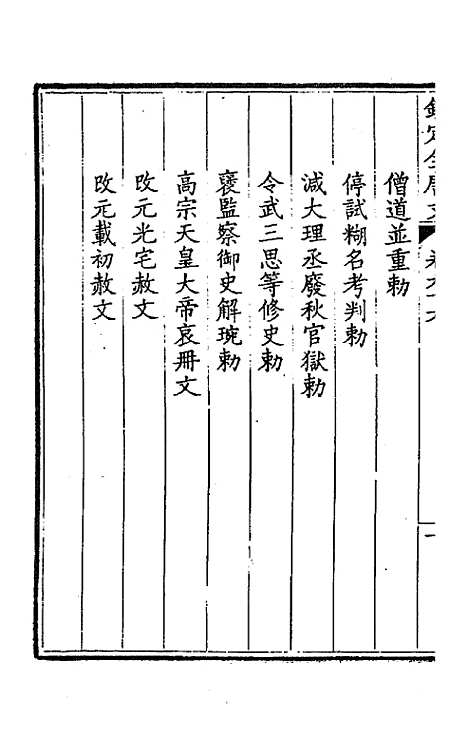 僧道並重勅
停試糊名考判勅
減大理丞廢秋官獄勅
令武三思等修史勅
襃監察御史解琬勅
高宗天皇大帝哀冊文
改元光宅赦文
改元載初赦文